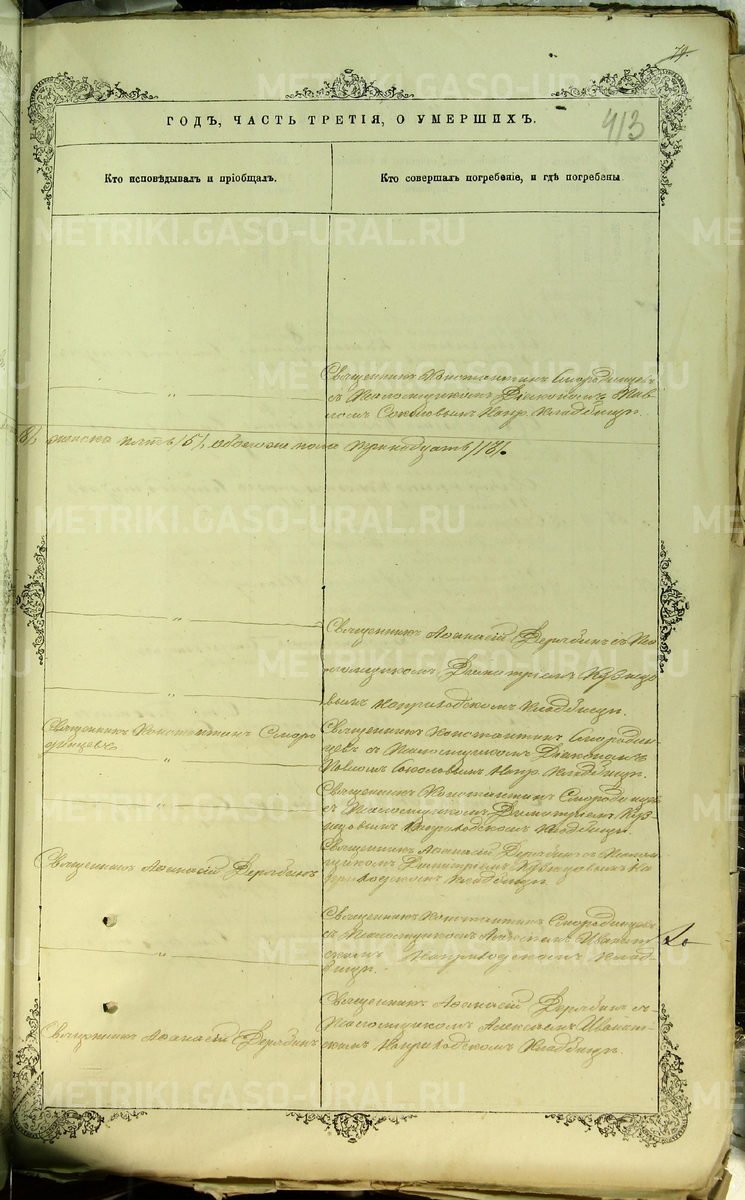 79.
413
ГОДЪ, ЧАСТЬ ТРЕТІЯ, О УМЕРШИХЪ.
Кто исповѣдывалъ и пріобщалъ.
Кто совершалъ погребеніе, и гдѣ погребены.
Священникъ Константинъ Смородинцевъ
съ Псаломщикомъ Діакономъ Пав-
ломъ Соколовымъ На пр. Кладбищѣ.
8/ женска пять /5/, обоего же пола тринадцать /13/.
Священникъ Афанасій Дерябинъ съ Пса-
ломщикомъ Димитріемъ Кузнецо-
вымъ На приходскомъ Кладбищѣ.
Священникъ Константинъ Сморо-
динцевъ
Священникъ Константинъ Смородин-
цевъ съ Псаломщикомъ Діакономъ
Павломъ Соколовымъ На пр. Кладбищѣ.
Священникъ Константинъ Смородинцевъ
съ Псаломщикомъ Димитріемъ Куз-
нецовымъ На приходскомъ Кладбищѣ.
Священникъ Афанасій Дерябинъ
Священникъ Афанасій Дерябинъ съ Псалом-
щикомъ Димитріемъ Кузнецовымъ На
приходскомъ Кладбищѣ.
Священникъ Константинъ Смородинцевъ
съ Псаломщикомъ Алексѣемъ
На приходскомъ Клад-
бищѣ.
Священникъ Афанасій Дерябинъ
Священникъ Афанасій Дерябинъ съ
Псаломщикомъ Алексѣемъ
На приходскомъ Кладбищѣ.
METRIKI.GASO-URAL.RU